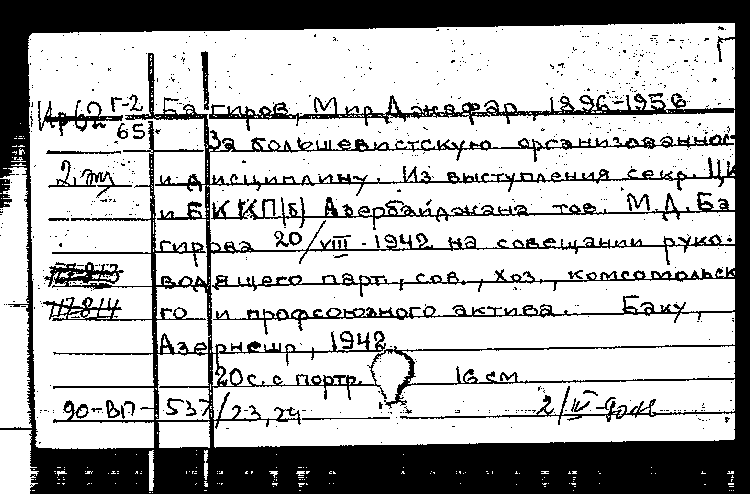 Г
Кр62 Г-2 Багиров, Мир Джафар, 1896-1956
65 За большевистскую организованнос
2 экз и дисциплину. Из выступления секр. ЦК
и БК КП(б) Азербайджана тов. М.Д. Ба
гирова 20/VIII-1942 на совещании руко-
117813 водящего парт., сов., хоз., комсомольск
117814 го и профсоюзного актива. Баку,
Азернешр, 1942.
20 с. с портр. 16 см
90-ВП-537/23,24 2/IV-